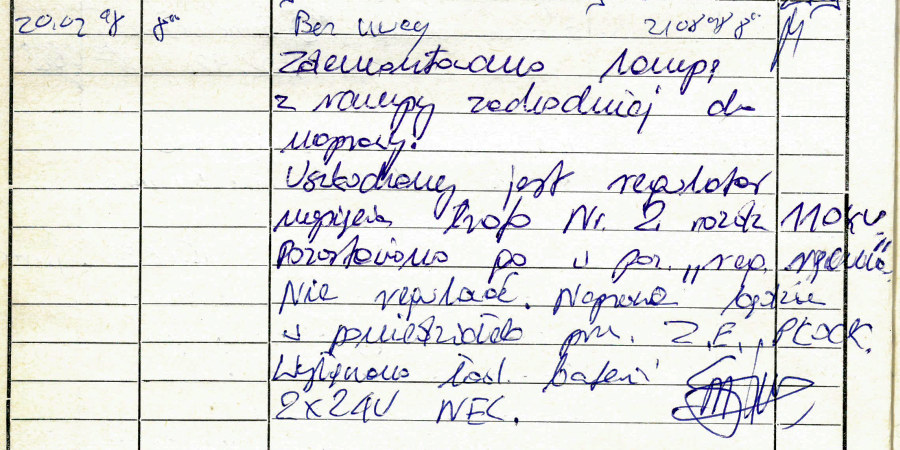 20.02 98 Bez uwag 21.08 98
Zdemontowano lampę
z rampy zachodniej do
naprawy.
Uszkodzony jest regulator
napięcia Trafo Nr. 2 rozdz 110kV.
Pozostawiono go w poz. „ręczna"
Nie regulować. Naprawa będzie
w poniedziałek przez Z.E. PŁOCK.
Wyłączono ład. baterii
2x24V NEC.